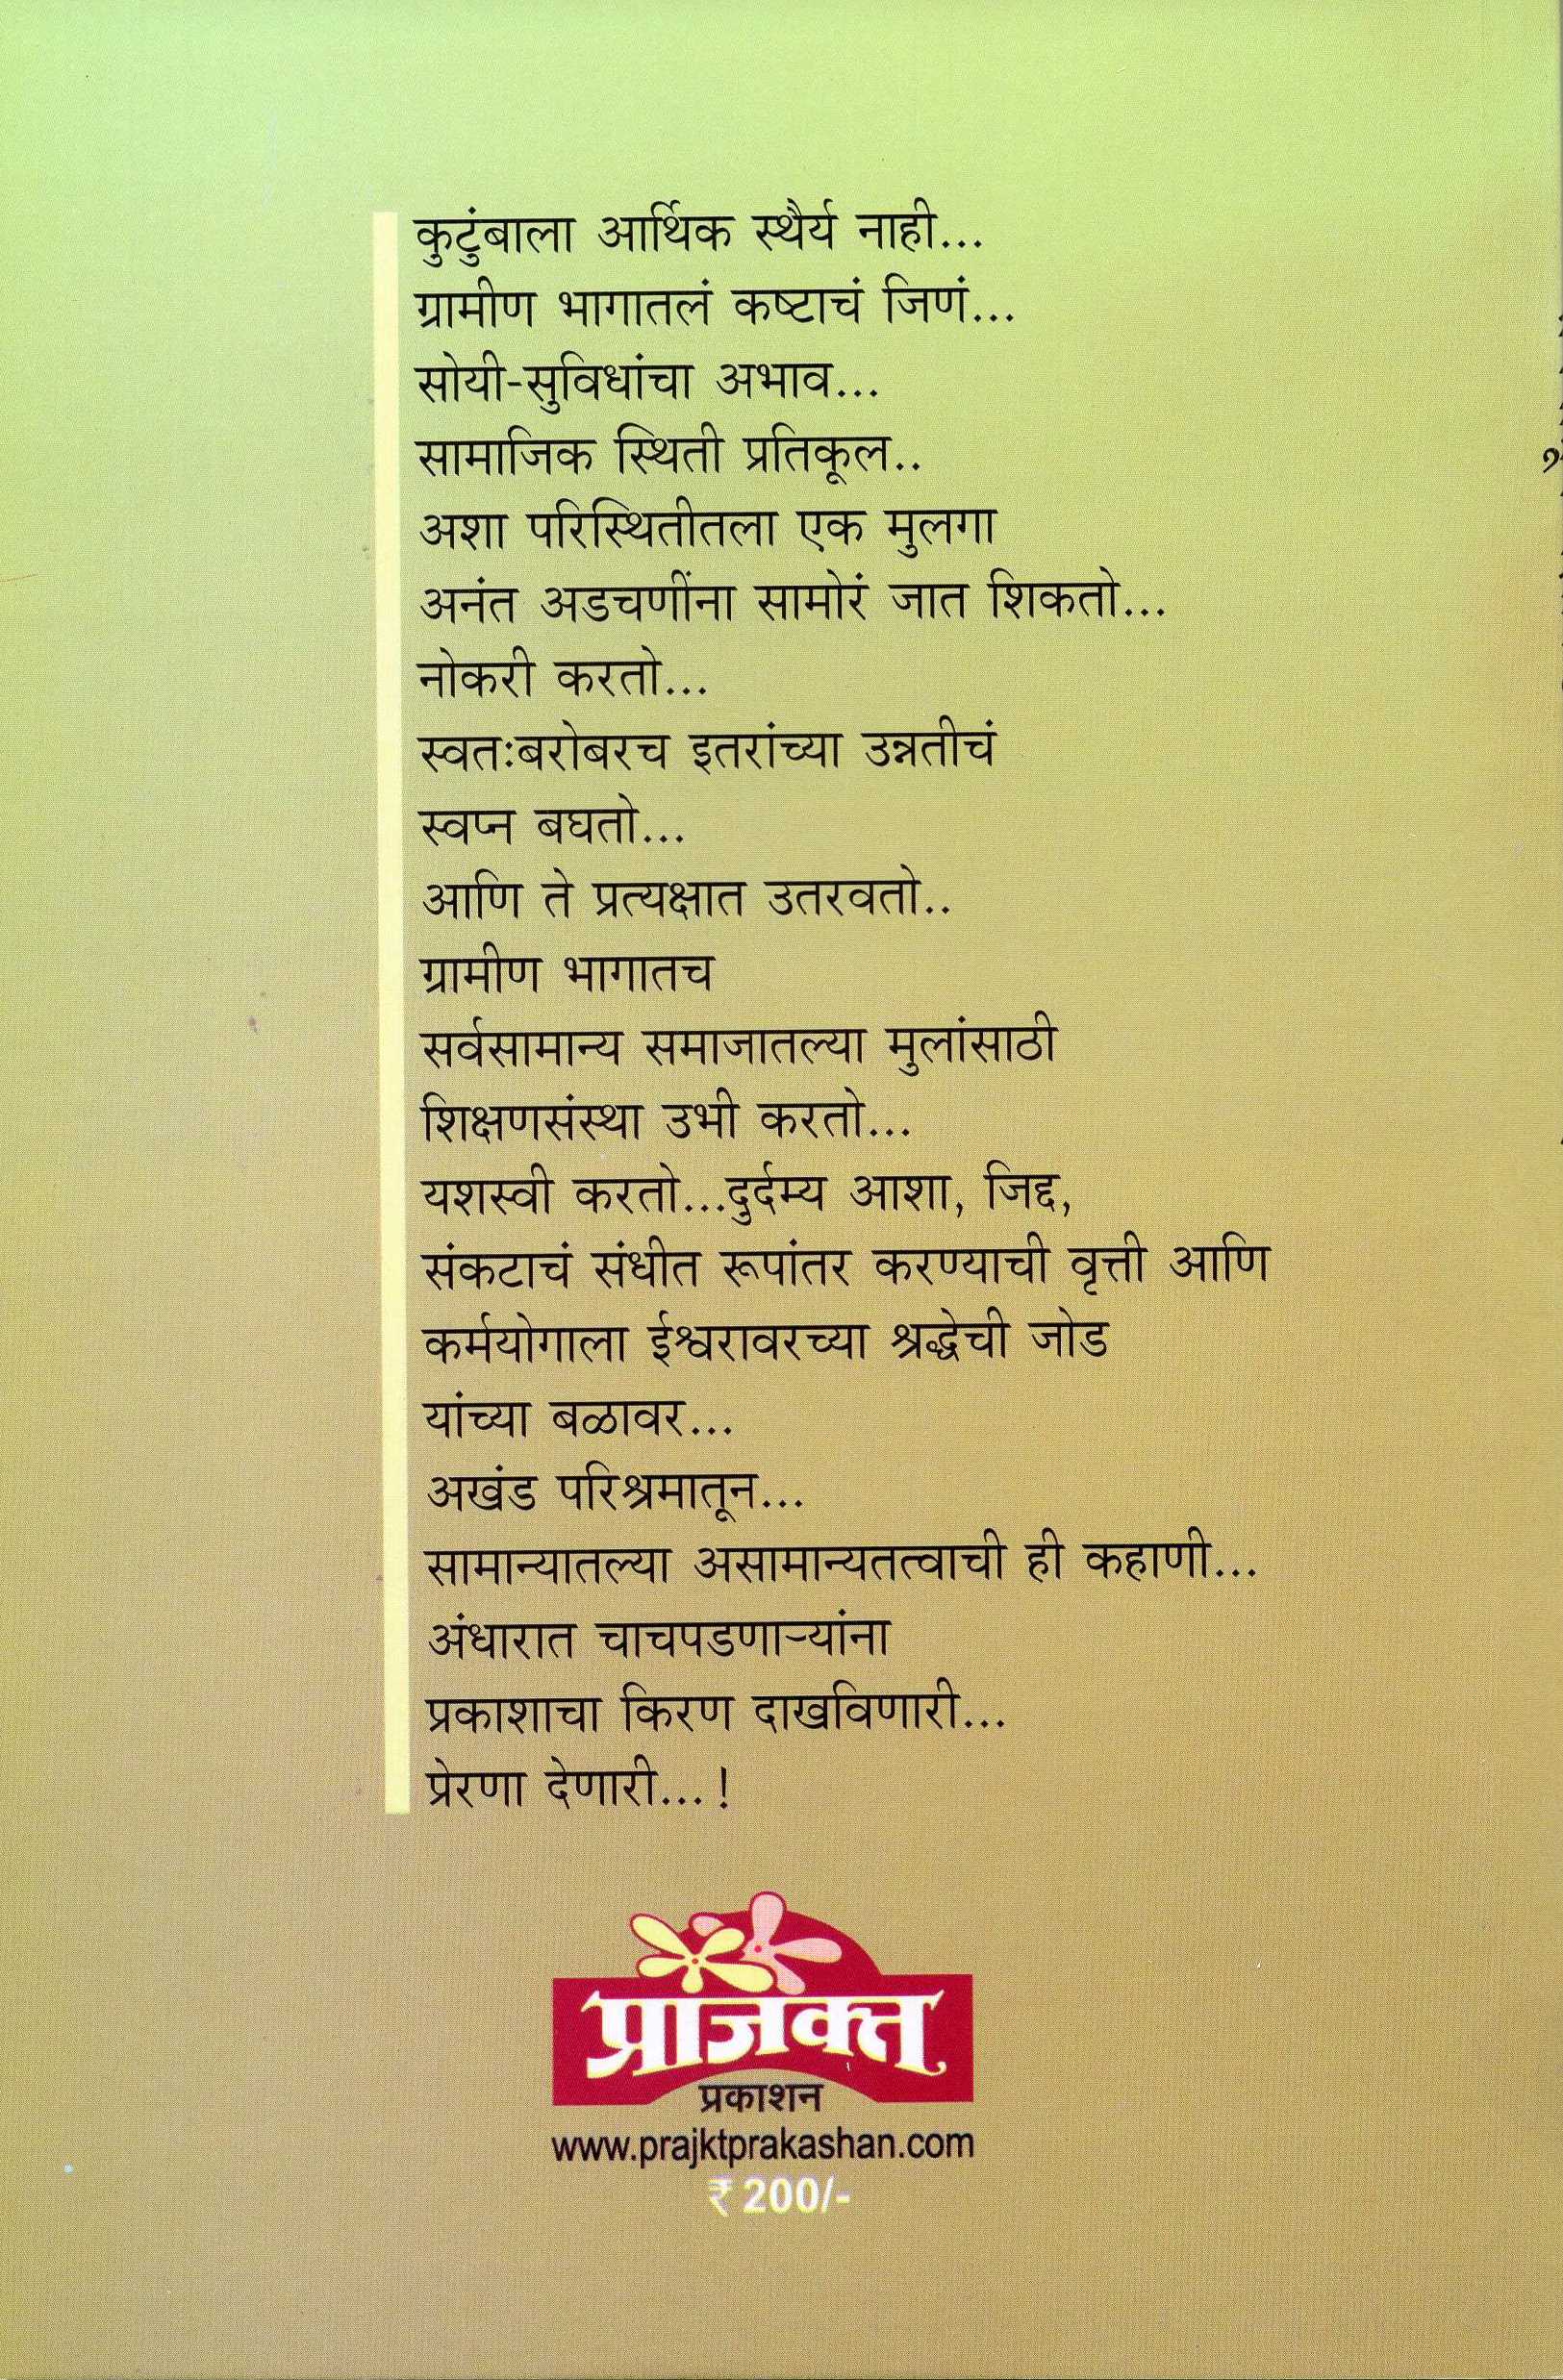 कुटुंबाला आर्थिक स्थैर्य नाही...
ग्रामीण भागातलं कष्टाचं जिणं...
सोयी-सुविधांचा अभाव...
सामाजिक स्थिती प्रतिकूल..
अशा परिस्थितीतला एक मुलगा
अनंत अडचणींना सामोरं जात शिकतो...
नोकरी करतो...
स्वतःबरोबरच इतरांच्या उन्नतीचं
स्वप्न बघतो...
आणि ते प्रत्यक्षात उतरवतो..
ग्रामीण भागातच
सर्वसामान्य समाजातल्या मुलांसाठी
शिक्षणसंस्था उभी करतो...
यशस्वी करतो...दुर्दम्य आशा, जिद्द,
संकटाचं संधीत रूपांतर करण्याची वृत्ती आणि
कर्मयोगाला ईश्वरावरच्या श्रद्धेची जोड
यांच्या बळावर...
अखंड परिश्रमातून...
सामान्यातल्या असामान्यतत्वाची ही कहाणी...
अंधारात चाचपडणाऱ्यांना
प्रकाशाचा किरण दाखविणारी...
प्रेरणा देणारी...!
प्राजक्त
प्रकाशन
www.prajktprakashan.com
₹ 200/-